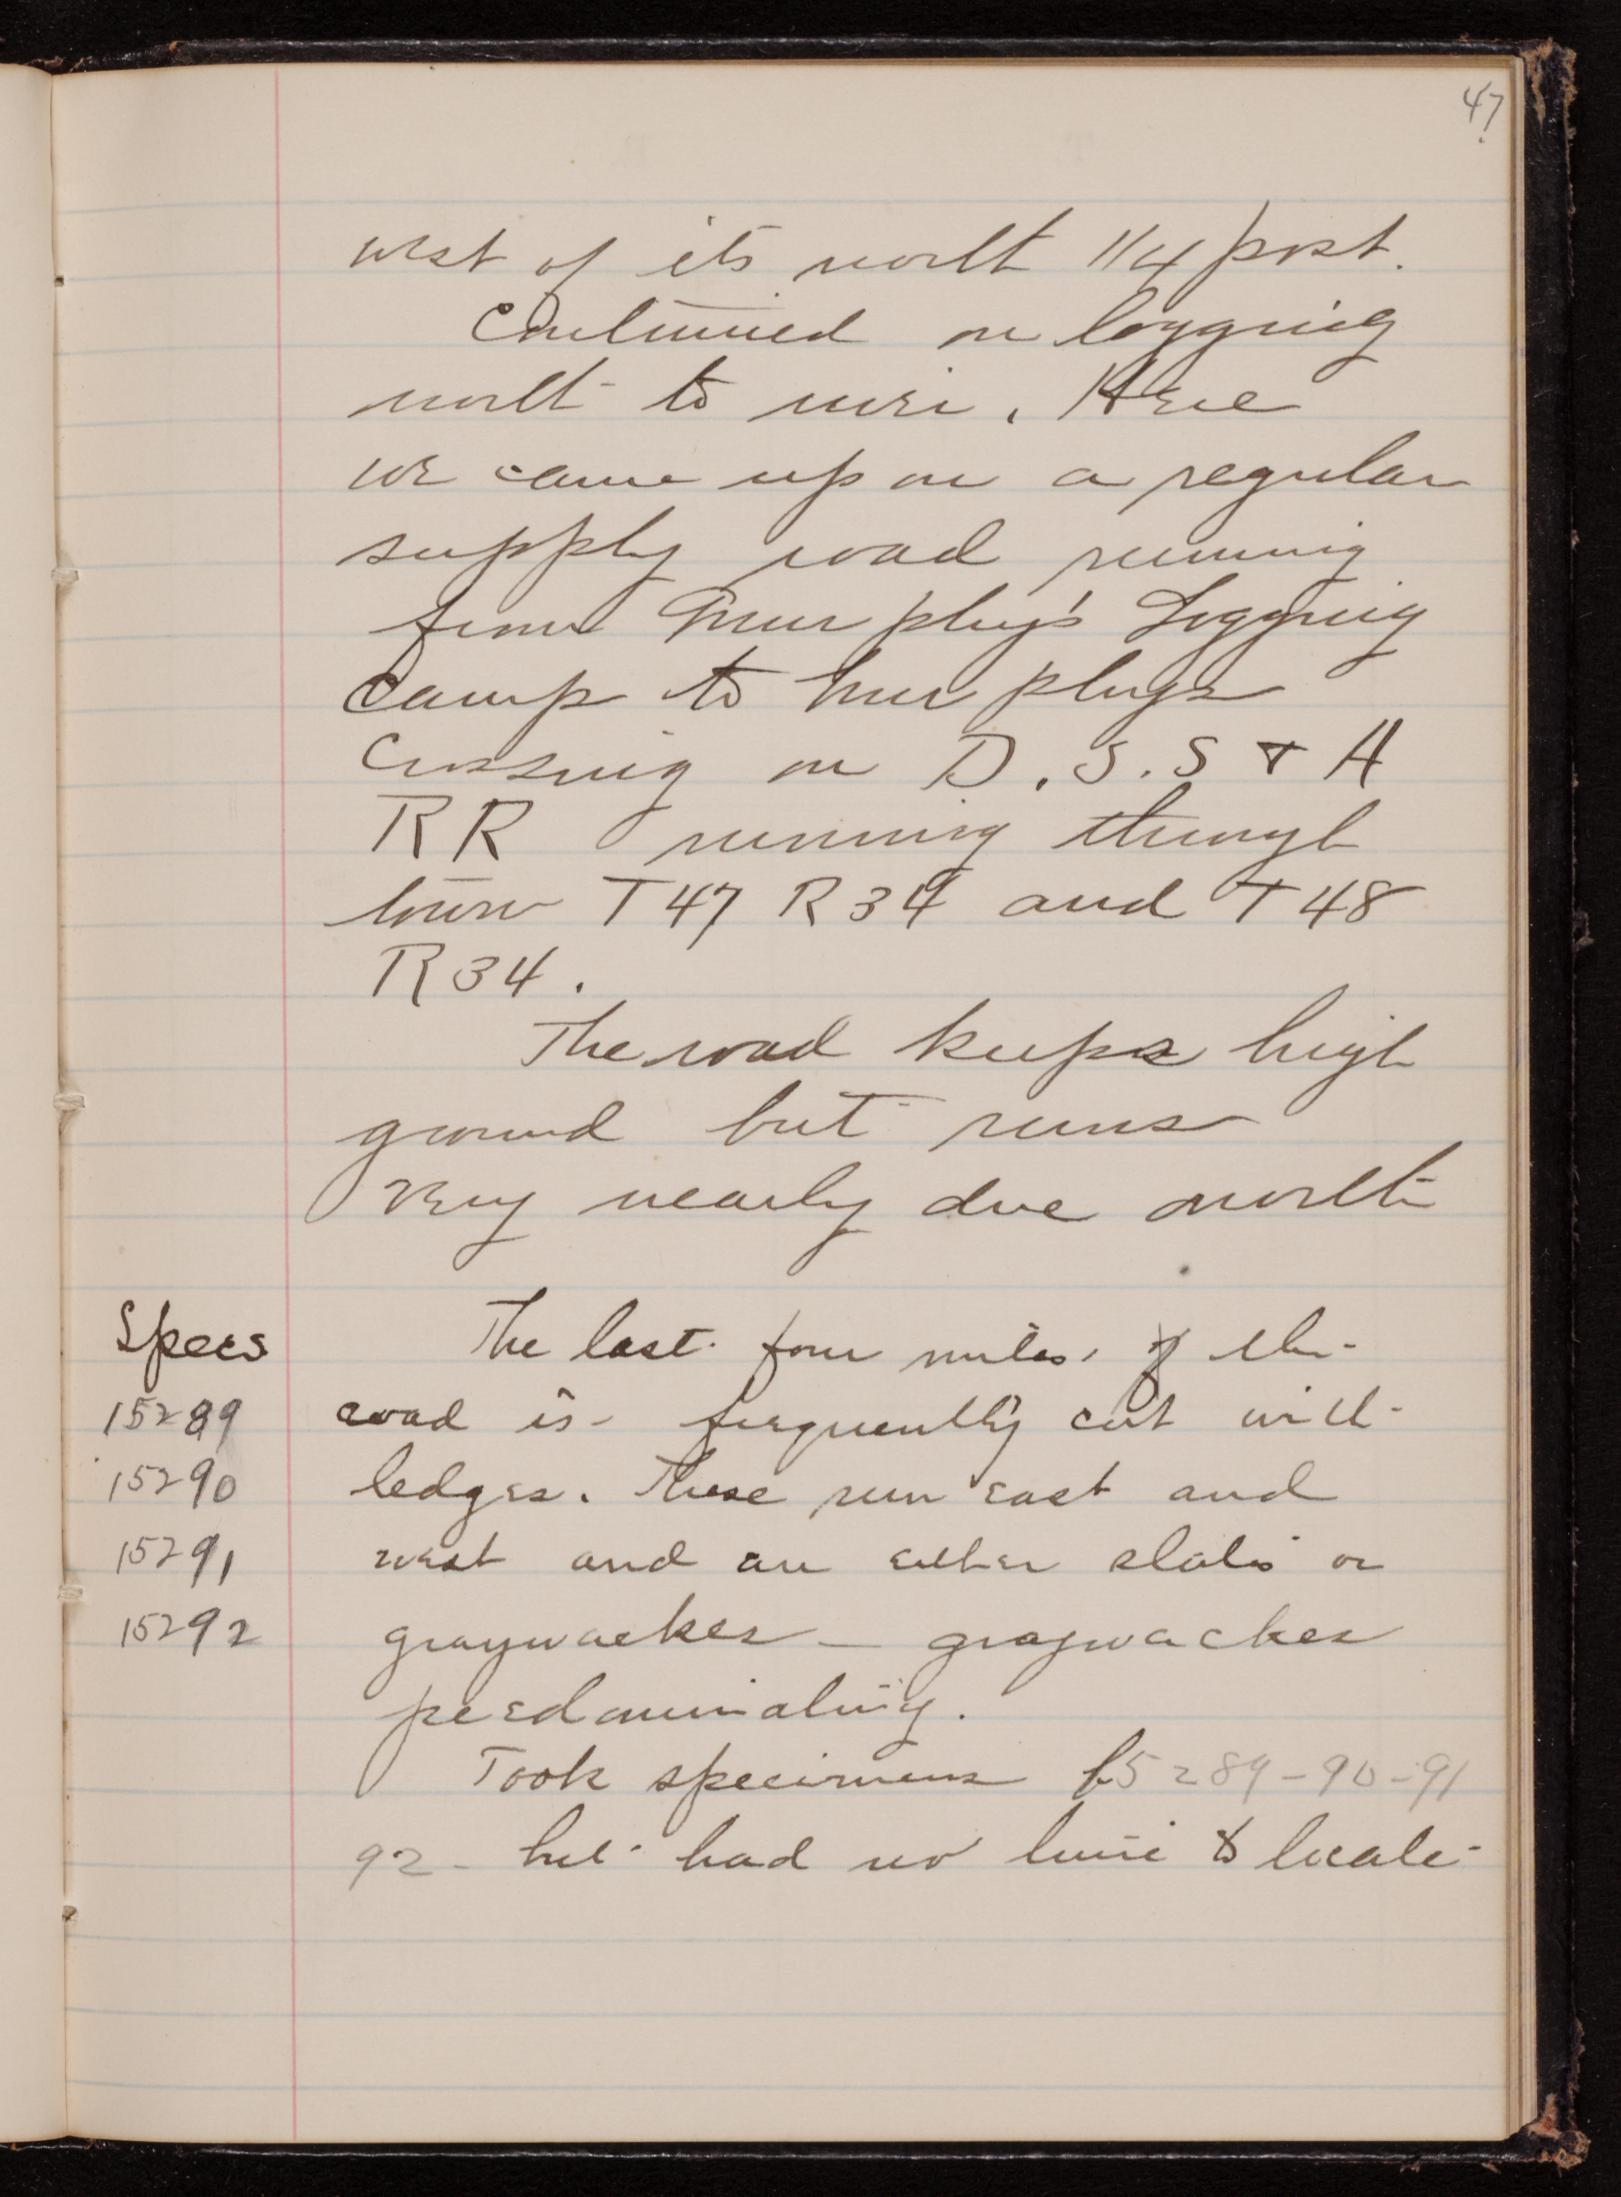 47
west of its north 1/4 post.
Continued on logging
north to river. Here
we came up on a regular
supply road running
from Murphy's Logging
Camp to Murphys
Crossing on D. S. S & A
RR running through
town T 47 R 34 and T 48
R 34.
The road keeps high
ground but runs
very nearly due north
Specs
The last four miles, of the
15289
road is frequently cut with
15290
ledges. These run east and
15291
west and are either slates or
15292
graywackes — graywackes
predominating.
Took specimens 15289-90-91
92 - but had no time to locate